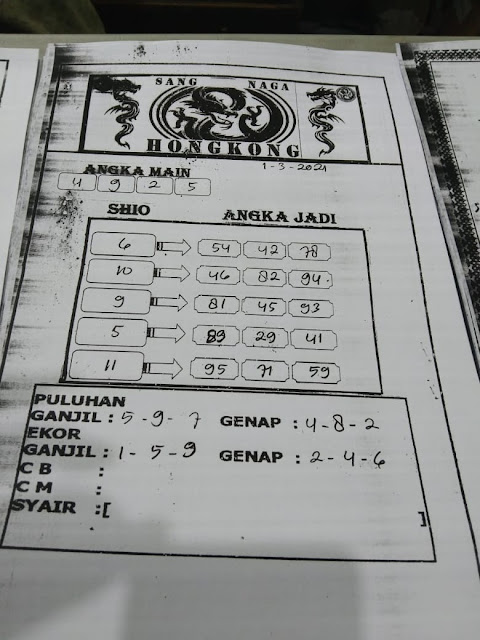 SANG NAGA
HONGKONG
1-3-2021
ANGKA MAIN
4 9 2 5
SHIO ANGKA JADI
6 54 42 78
10 46 82 94
9 81 45 93
5 89 29 41
11 95 71 59
PULUHAN
GANJIL : 5-9-7 GENAP : 4-8-2
EKOR
GANJIL : 1-5-9 GENAP : 2-4-6
C B :
C M :
SYAIR :[
]